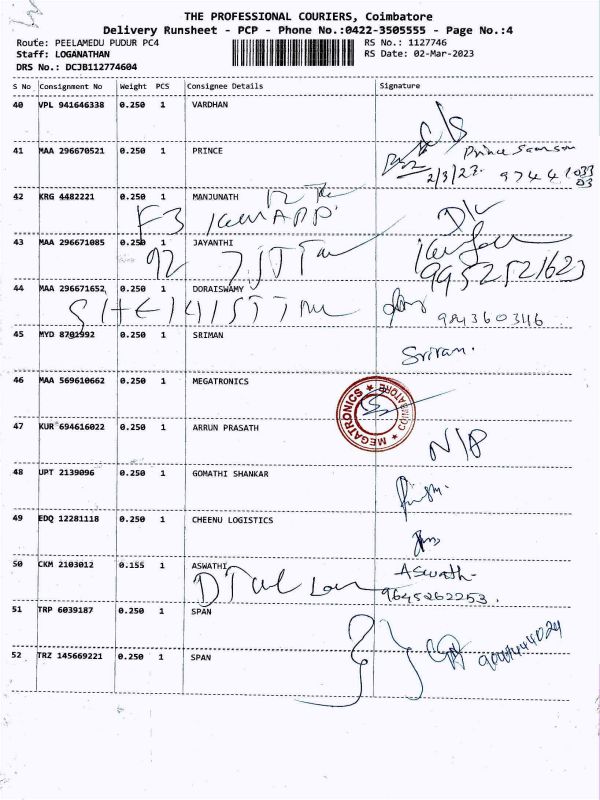 THE PROFESSIONAL COURIERS, Coimbatore
Delivery Runsheet - PCP - Phone No.:0422-3505555 - Page No.:4
Route: PEELAMEDU PUDUR PC4
Staff: LOGANATHAN
DRS No.: DCJB112774604
RS No.: 1127746
RS Date: 02-Mar-2023
S No Consignment No Weight PCS Consignee Details Signature
40 VPL 941646338 0.250 1 VARDHAN
C/S
41 MAA 296670521 0.250 1 PRINCE
Prince Samson
2/3/23
42 KRG 4482221 0.250 1 MANJUNATH
F3
D/L
43 MAA 296671085 0.250 1 JAYANTHI
9952521623
44 MAA 296671652 0.250 1 DORAISWAMY
9843603116
45 MYD 8701992 0.250 1 SRIMAN
Sriram.
46 MAA 569610662 0.250 1 MEGATRONICS
MEGATRONICS ★ COIMBATORE ★
47 KUR 694616022 0.250 1 ARRUN PRASATH
N/P
48 UPT 2139096 0.250 1 GOMATHI SHANKAR
49 EDQ 12281118 0.250 1 CHEENU LOGISTICS
50 CKM 2103012 0.155 1 ASWATHI
Aswath
9645262253.
51 TRP 6039187 0.250 1 SPAN
52 TRZ 145669221 0.250 1 SPAN